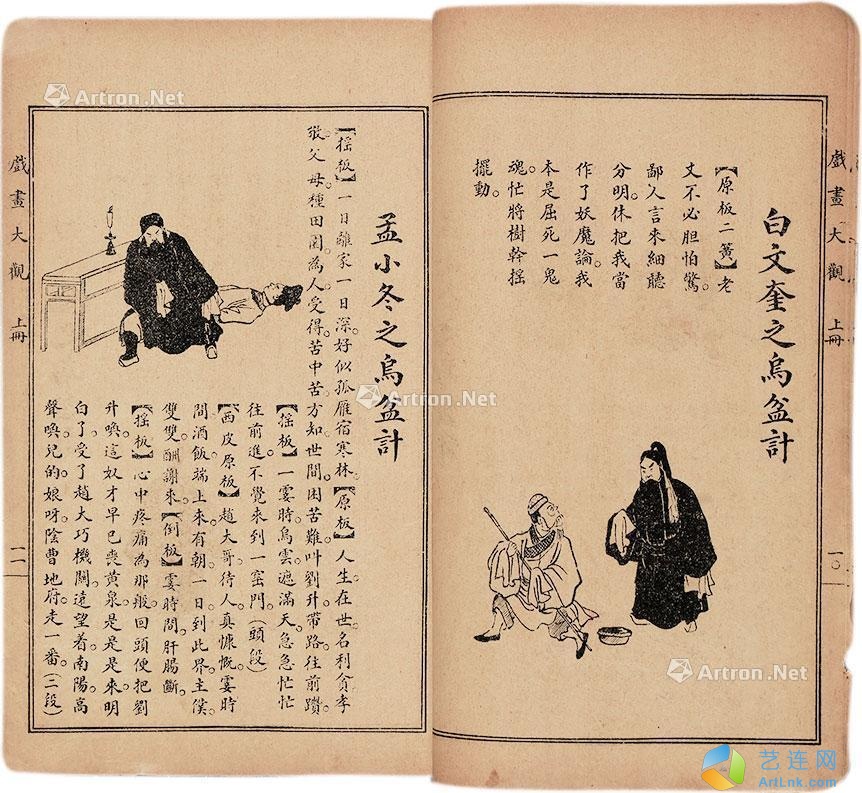 戲畫大觀 上冊
一〇
白文奎之烏盆計
【原板二簧】老
丈不必胆怕驚
鄙人言來細聽
分明休把我當
作了妖魔論我
本是屈死一鬼
魂忙將樹幹搖
擺動。
孟小冬之烏盆計
【搖板】一日離家一日深。好似孤雁宿寒林。【原板】人生在世名利貪孝
敬父母種田園。為人受得苦中苦。方知世間困苦難叫劉升帶路往前躦
【搖板】一霎時烏雲遮滿天。急急忙忙
往前進不覺來到一窰門。(頭段)
【西皮原板】趙大哥待人真慷慨霎時
間酒飯端上來有朝一日到此界主僕
雙雙酬謝來。【倒板】霎時間肝腸斷。
【搖板】心中疼痛為那般回頭便把劉
升喚這奴才早已喪黃泉是是是來明
白了受了趙大巧機關。遠望着南陽高
聲喚兒的娘呀陰曹地府走一番。(二段)
戲畫大觀 上冊
一一
Artron.Net
Artron.Net
Artron.Net
艺连网
ArtLnk.com